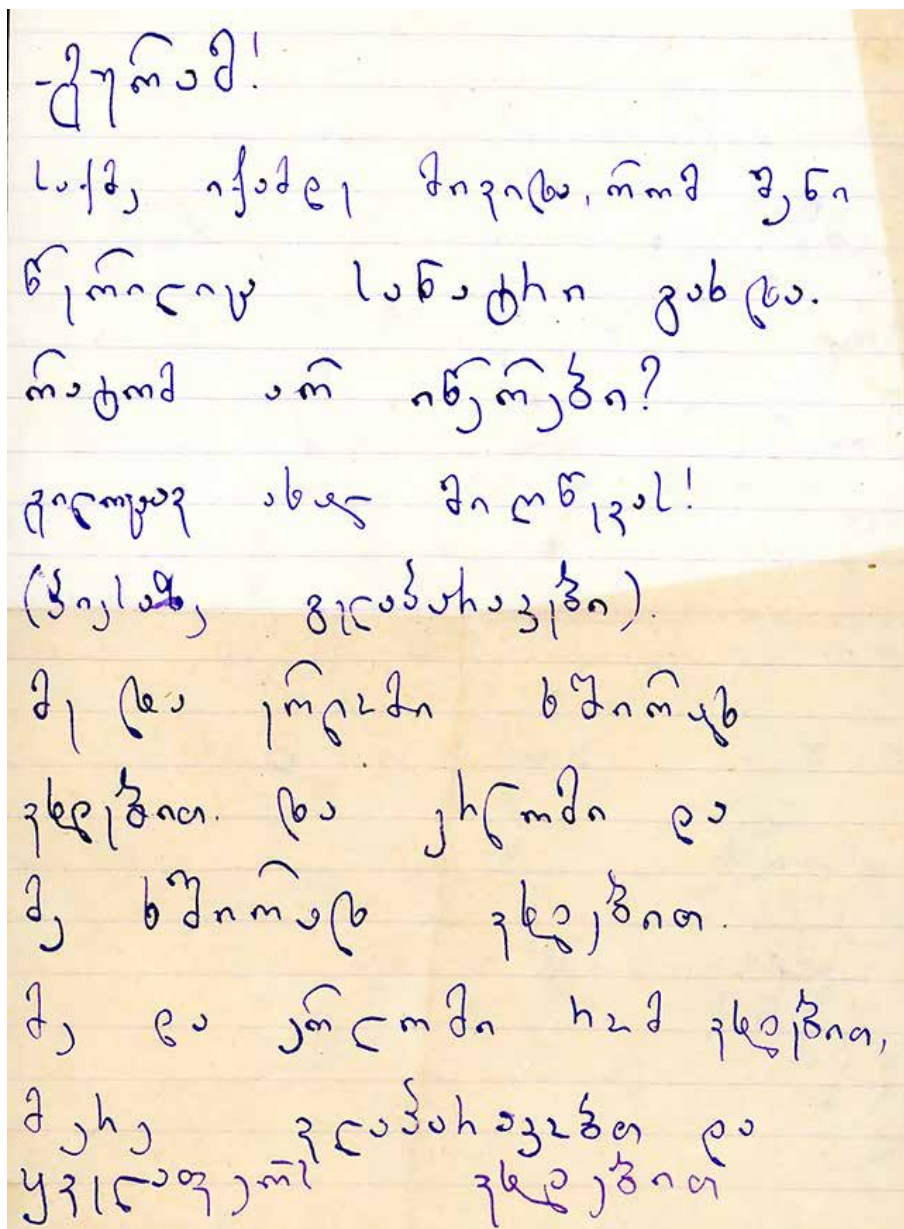 -გურამ!
საქმე იქამდე მივიდა, რომ შენი
წერილიც სანატრი გახდა.
რატომ არ იწერები?
გილოცავ ახალ მიღწევას!
(პიესაზე გელაპარაკები).
მე და ერლომი ხშირად
ვსხდებით. და ერლომი და
მე ხშირად ვსხდებით.
მე და ერლომი რომ ვსხდებით,
მერე ვლაპარაკობთ და
ყველაფერს ვხვდებით